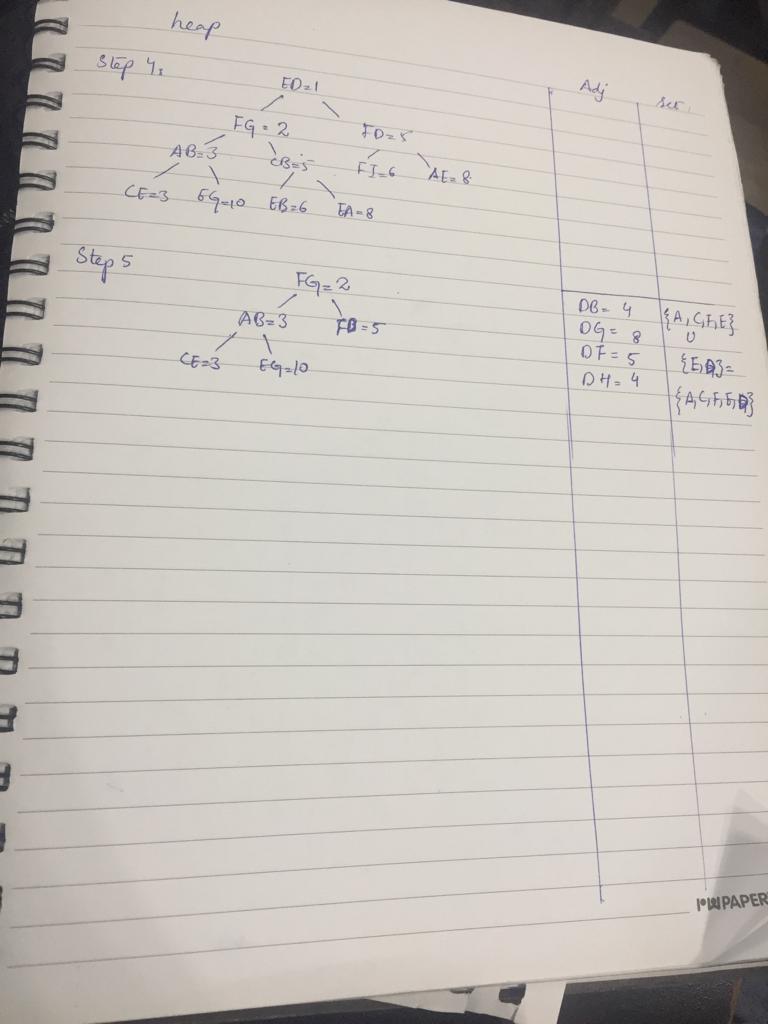 heap
Adj
Set
Step 4:
ED=1
FG=2 FD=5
AB=3 CB=5 FI=6 AE=8
CE=3 EG=10 EB=6 EA=8
Step 5
FG=2
AB=3 FD=5
CE=3 EG=10
DB= 4
DG= 8
DF= 5
DH= 4
{A,C,F,E}
U
{E,D}=
{A,C,F,E,D}
PAPER